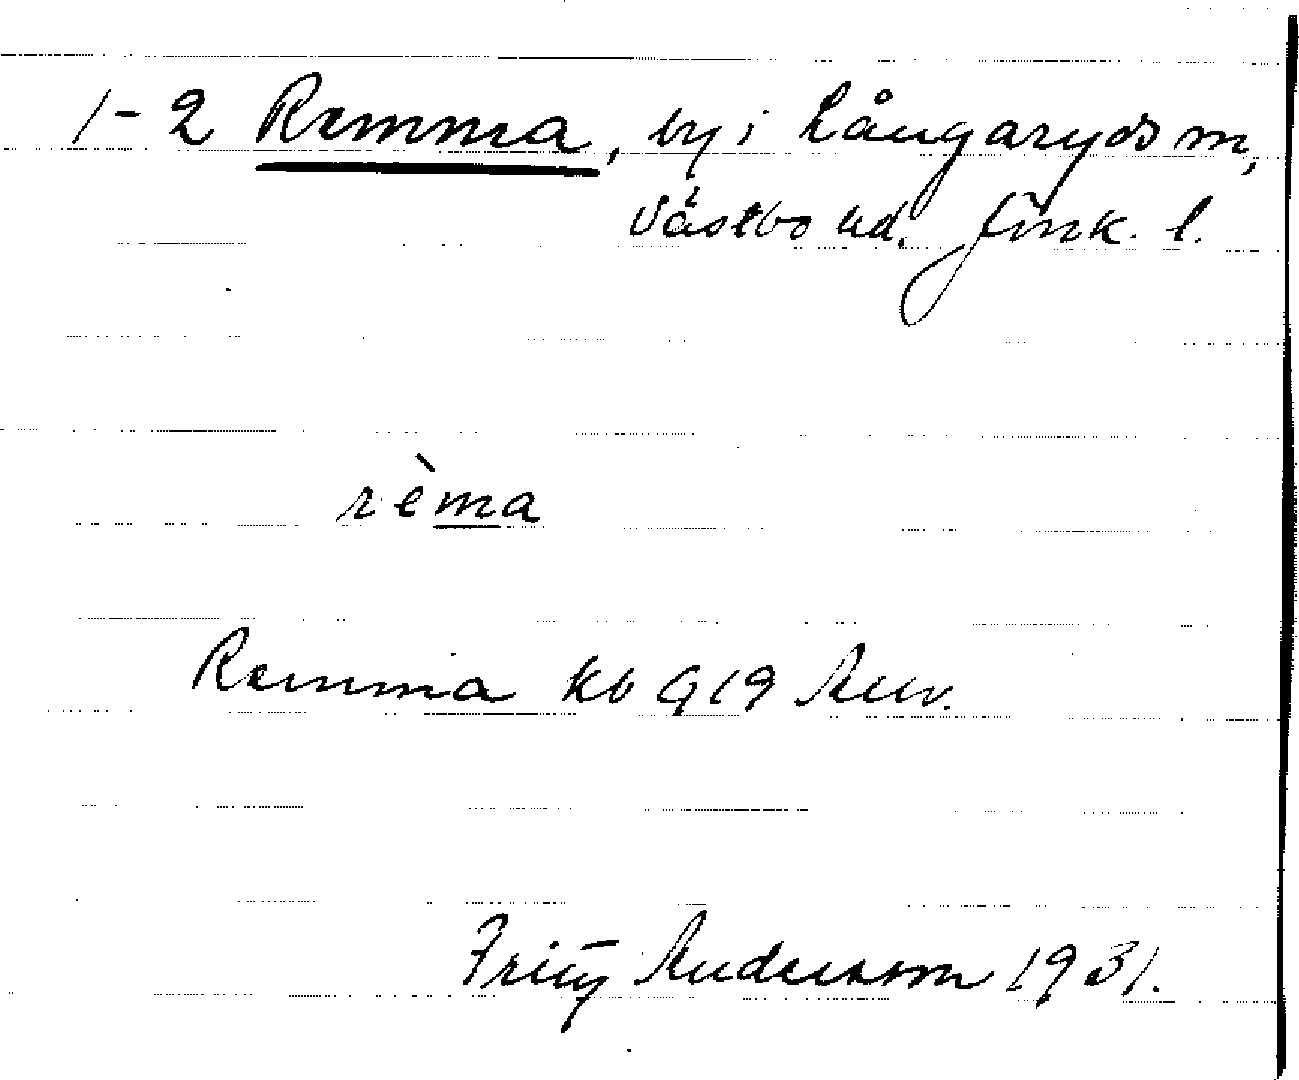 1-2 Remma, by i Långaryds sn,
Västbo hd. Jönk. l.
rèma
Remma kb 919 Auv.
Fritz Andersson 1931.